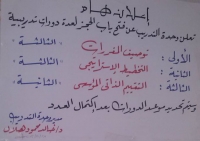 إعلان هام
تعلن وحدة التدريب عن فتح باب الحجز لعدة دورات تدريبية
الأولى: توصيف المقررات الثالثة:
الثانية: التخطيط الاستراتيجى
الثالثة: التقييم الذاتى المؤسسى الثانية:
وسيتم تحديد موعد الدورات بعد اكتمال العدد
مدير وحدة التدريب